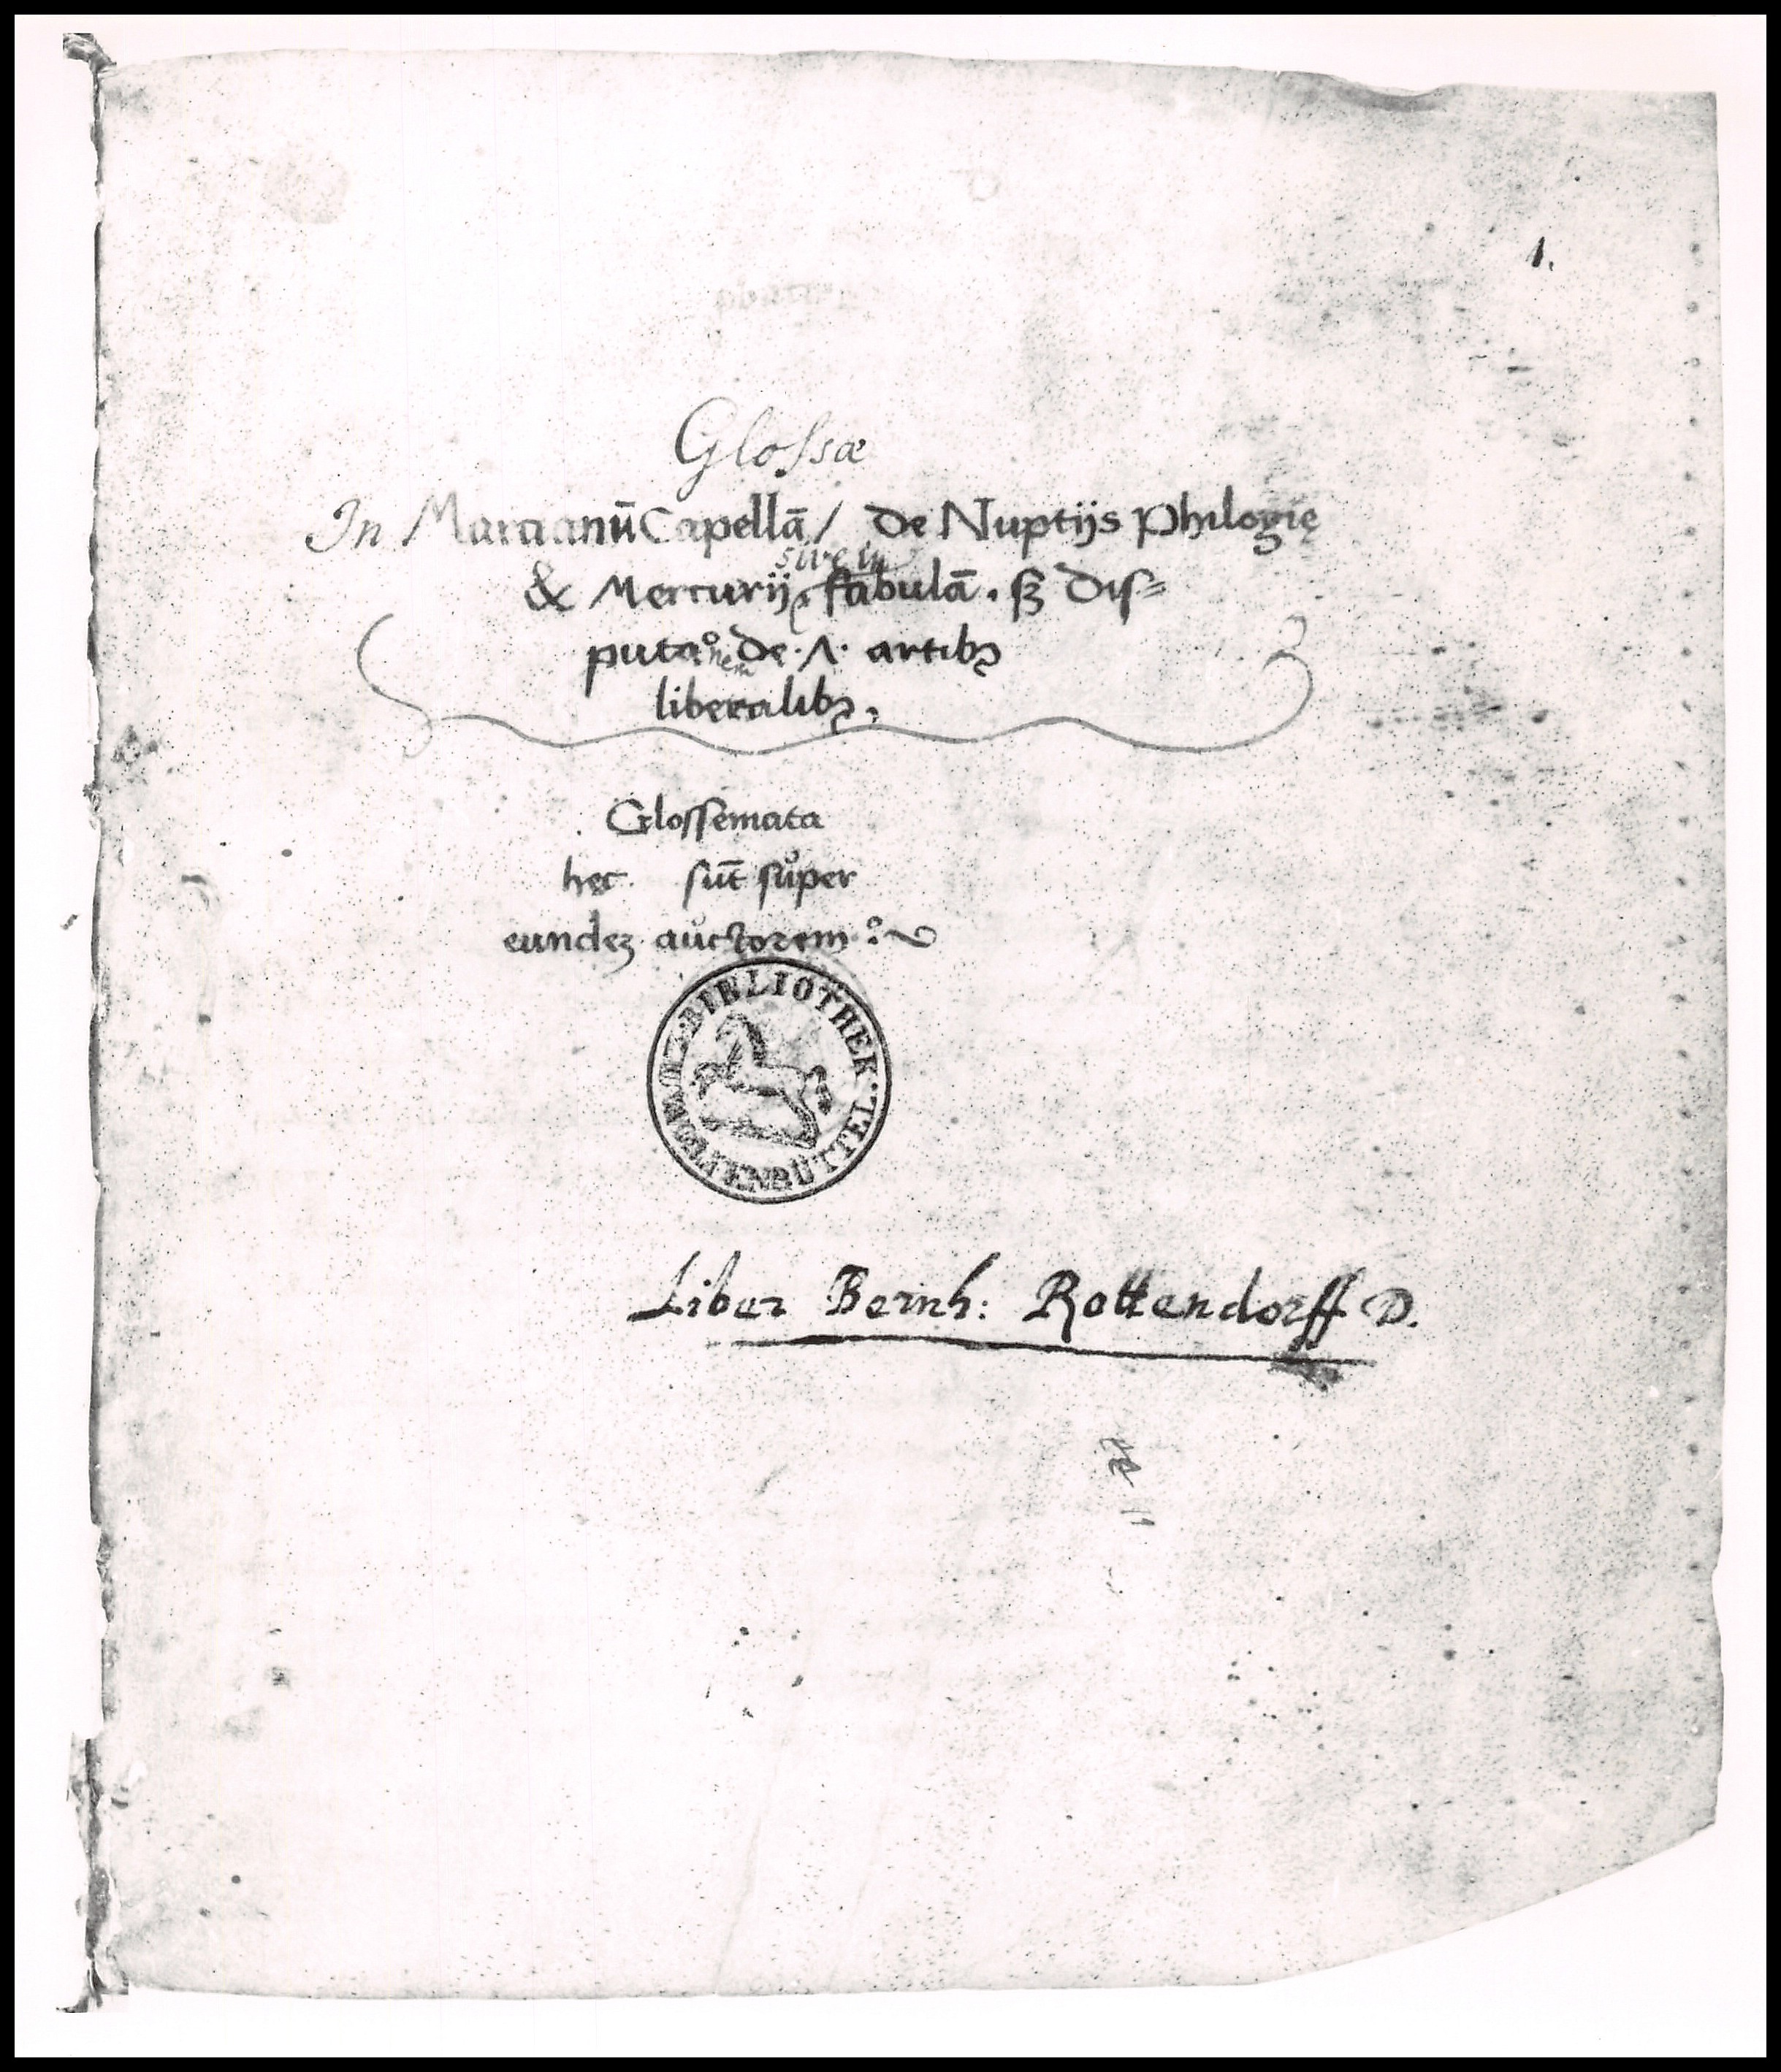 1.
Glossæ
In Marcianū Capellā / de Nuptijs Philogię
sive in
& Mercurij fabulā . sʒ Dis=
putaᵒ de ·Λ· artibꝫ
nem
liberalibꝫ.
Glossemata
hęc sūt sůper
eundeʒ auctorem :~
BIBLIOTHEK. WOLFENBÜTTEL.
Liber Bernh: Rottendorff D.